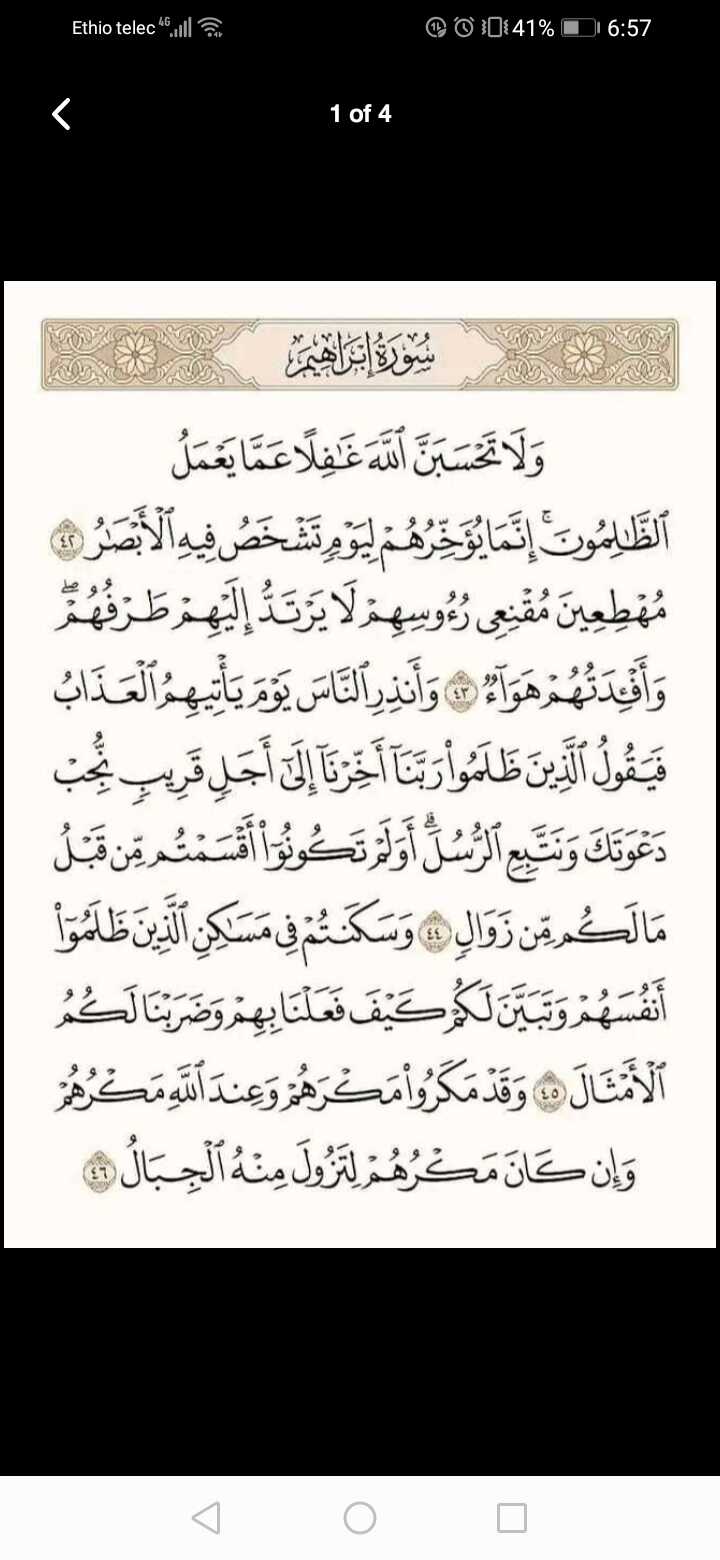 Ethio telec 4G 41% 6:57
1 of 4
سُورَةُ إِبْرَاهِيمَ
وَلَا تَحْسَبَنَّ ٱللَّهَ غَٰفِلًا عَمَّا يَعْمَلُ
ٱلظَّٰلِمُونَۚ إِنَّمَا يُؤَخِّرُهُمْ لِيَوْمٍ تَشْخَصُ فِيهِ ٱلْأَبْصَٰرُ ٤٢
مُهْطِعِينَ مُقْنِعِى رُءُوسِهِمْ لَا يَرْتَدُّ إِلَيْهِمْ طَرْفُهُمْۖ
وَأَفْـِٔدَتُهُمْ هَوَآءٌ ٤٣ وَأَنذِرِ ٱلنَّاسَ يَوْمَ يَأْتِيهِمُ ٱلْعَذَابُ
فَيَقُولُ ٱلَّذِينَ ظَلَمُوا۟ رَبَّنَآ أَخِّرْنَآ إِلَىٰٓ أَجَلٍ قَرِيبٍ نُّجِبْ
دَعْوَتَكَ وَنَتَّبِعِ ٱلرُّسُلَۗ أَوَلَمْ تَكُونُوٓا۟ أَقْسَمْتُم مِّن قَبْلُ
مَا لَكُم مِّن زَوَالٍ ٤٤ وَسَكَنتُمْ فِى مَسَٰكِنِ ٱلَّذِينَ ظَلَمُوٓا۟
أَنفُسَهُمْ وَتَبَيَّنَ لَكُمْ كَيْفَ فَعَلْنَا بِهِمْ وَضَرَبْنَا لَكُمُ
ٱلْأَمْثَالَ ٤٥ وَقَدْ مَكَرُوا۟ مَكْرَهُمْ وَعِندَ ٱللَّهِ مَكْرُهُمْ
وَإِن كَانَ مَكْرُهُمْ لِتَزُولَ مِنْهُ ٱلْجِبَالُ ٤٦